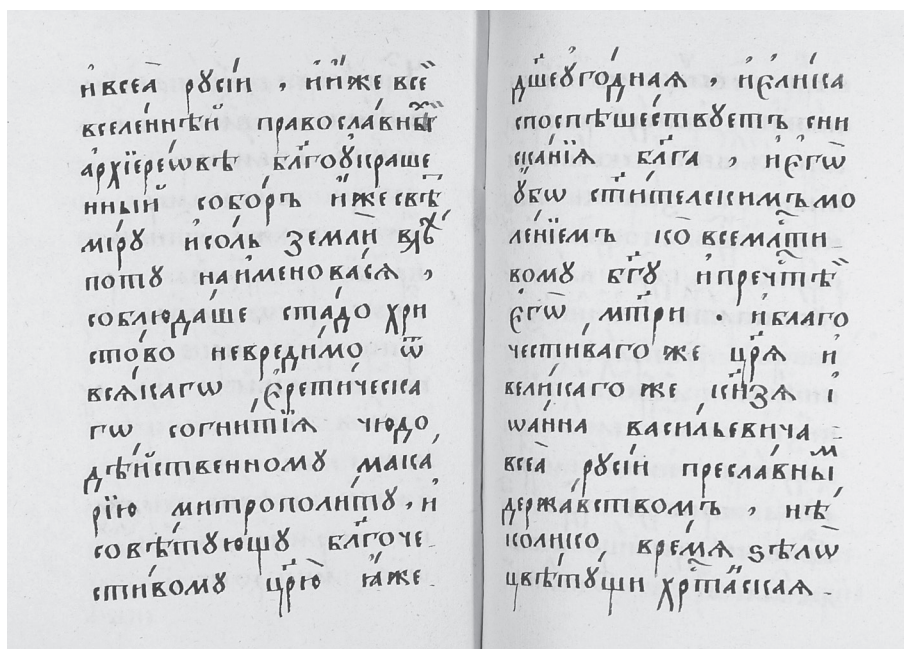 и҆всеѧ̀ рꙋсі́и , и҆и҆́же всѐ
вселе́ннѣй правосла́вныⷯ
а҆рхїере́ѡвъ бл҃гоꙋкраше
нный собо́ръ и҆́же свѣ́
мі́рꙋ и҆со́ль землѝ влⷣѣ
потꙋ̀ наи҆меноваса̀ѧ ,
соблюда́ше ста́до хри
сто́во невреди́мо ѿ
всѧ́кагѡ є҆рети́ческа
гѡ согни́тїѧ чюдо
дѣ́йственномꙋ мака́
рїю митрополи́тꙋ , и҆
совѣ́тꙋющꙋ бл҃гоче
сти́вомꙋ цр҃ю̀ ꙗ҆̀же
дш҃еꙋго́днаѧ , и҆є҆ли́ка
споспѣше́ствꙋетъ сни
ска́нїѧ бл҃га , и҆є҆гѡ̀
ꙋ҆́бѡ ст҃и́тельскимъ мо
ле́нїемъ ко всемлⷭ҇ти
вомꙋ бг҃ꙋ и҆пречⷭ҇тѣ
є҆гѡ̀ мт҃ри и҆благо
чести́ваго же цр҃ѧ̀ и҆
вели́каго же кн҃зѧ і҆
ѡа́нна васи́льевича
всеѧ̀ рꙋсі́и пресла́вныⷨ
держа́вствомъ , нѣ́
колико вре́мѧ ѕѣлѡ̀
цвѣтꙋ́щи хрⷭ҇тїа́нскаѧ